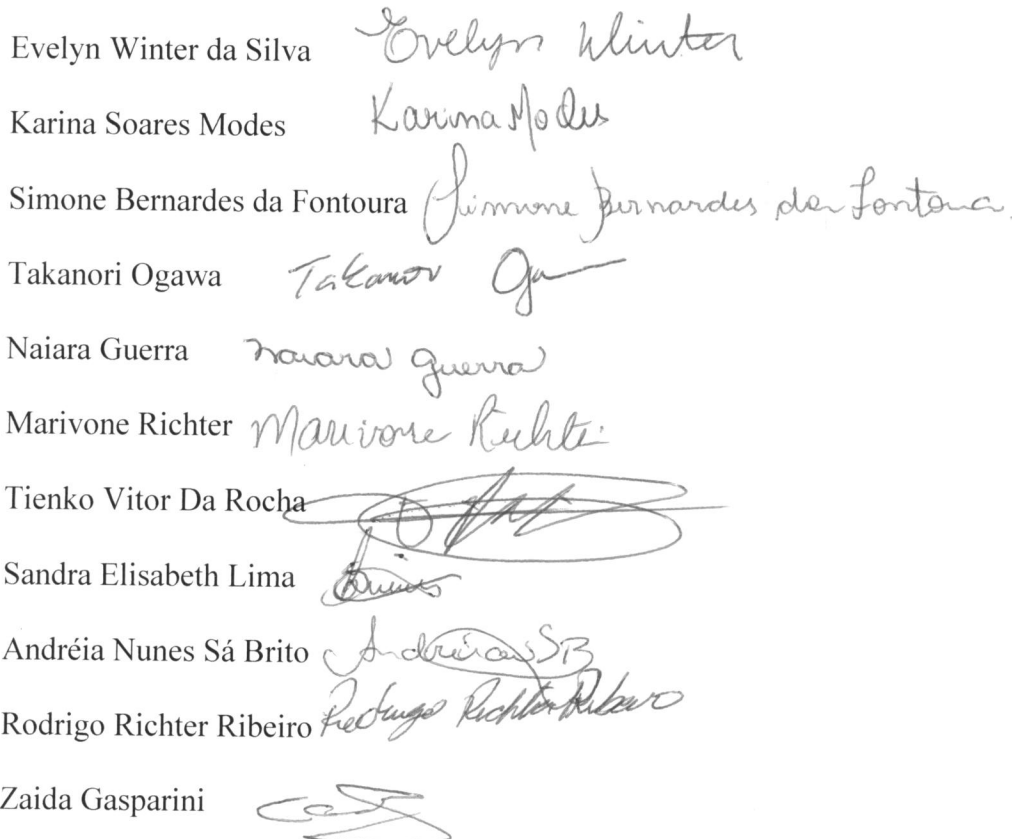 Evelyn Winter da Silva Evelyn Winter
Karina Soares Modes Karina Modes
Simone Bernardes da Fontoura Simone Bernardes da Fontoura
Takanori Ogawa Takanori
Naiara Guerra Naiara Guerra
Marivone Richter Marivone Richter
Tienko Vitor Da Rocha
Sandra Elisabeth Lima
Andréia Nunes Sá Brito Andréia SB
Rodrigo Richter Ribeiro Rodrigo Richter Ribeiro
Zaida Gasparini